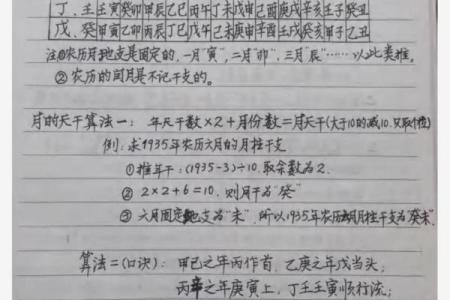 丁、壬 壬寅 癸卯 甲辰 乙巳 丙午 丁未 戊申 己酉 庚戌 辛亥 壬子 癸丑
戊、癸 甲寅 乙卯 丙辰 丁巳 戊午 己未 庚申 辛酉 壬戌 癸亥 甲子 乙丑
注①农历月地支是固定的,一月"寅",二月"卯",三月"辰"……以此类推。
②农历的闰月是不记干支的。
月的天干算法一:年天干数×2+月份数=月天干(大于10的减10.只取个位)
例:求1935年农历六月的月柱干支
①推年干:(1935-3)÷10.取余数为2.
② 2×2+6=10.则月干为"癸"
③六月固定地支为"未".所以1935年农历月柱干支为"癸未".
算法二(口诀):甲己之年丙作首,乙庚之年戊当头;
丙辛之年庚寅上,丁壬壬寅顺行流;